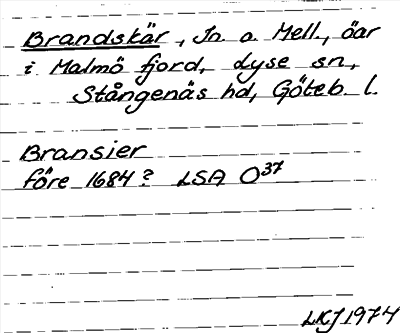 Brandskär, In. o. Mell., öar
i Malmö fjord, Lyse sn,
Stångenäs hd, Göteb. l.
Bransier
före 1684? LSA O37
LKJ 1974